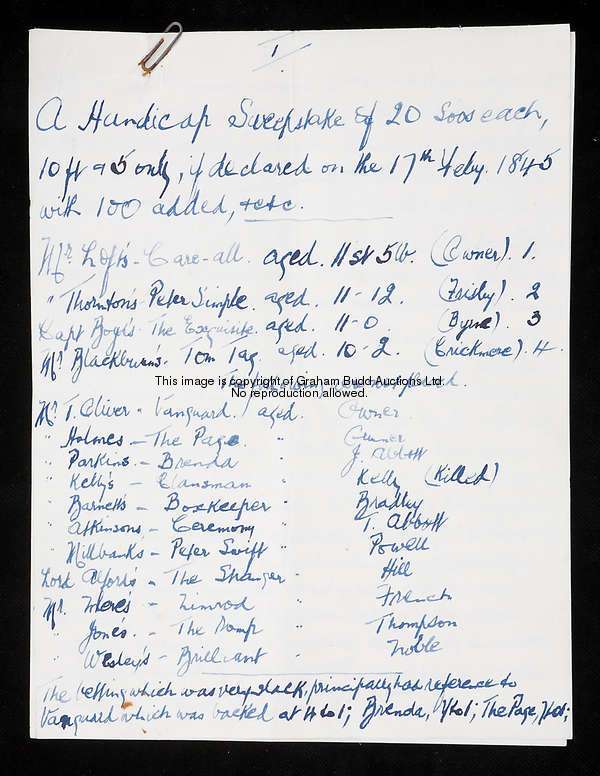 1.
A Handicap Sweepstake of 20 sovs each,
10 ft & 5 only, if declared on the 17th Feby. 1845
with 100 added, &c&c.
Mr Loft's - Care-all. aged. 11st 5lb. (Owner). 1.
" Thornton's Peter Simple. aged. 11-12. (Frisby). 2
Capt Boyd's - The Exquisite. aged. 11-0. (Byrne). 3
Mr Blackburn's - Tom Tug. aged. 10-2. (Crickmere). 4.
This image is copyright of Graham Budd Auctions Ltd.
No reproduction allowed.
Mr T. Oliver - Vanguard. aged. Owner.
" Holmes - The Page. " Owner
" Parkins - Brenda " J. Abbott
" Kelly's - Clansman " Kelly (Killed)
" Barnett's - Boxkeeper " Bradley
" Atkinsons - Ceremony " T. Abbott
" Millbanks - Peter Swift " Powell
Lord - The Stranger - Hill
Mr. - Nimrod - French
" Jone's. - The Romp " Thompson
" Wesley's - Brilliant - Noble
The betting which was very slack, principally had reference to
Vanguard which was backed at 4to1; Brenda, The Page,